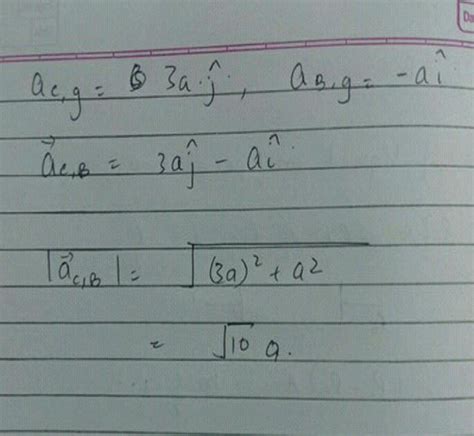 a_{C,g} = 3a ĵ, a_{B,g} = -a î
\vec{a}_{C,B} = 3a ĵ - a î
|\vec{a}_{C,B}| = √((3a)² + a²)
= √10 a.